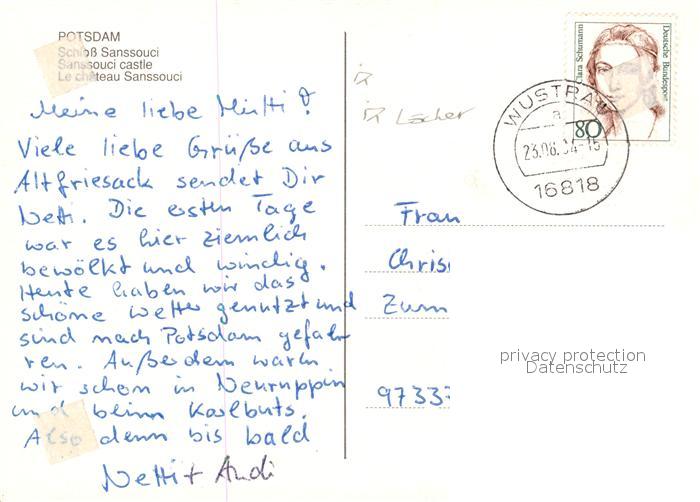 POTSDAM
Schloß Sanssouci
Sanssouci castle
Le château Sanssouci
Meine liebe Mutti!
Viele liebe Grüße aus
Altfriesack sendet Dir
Netti. Die ersten Tage
war es hier ziemlich
bewölkt und windig.
Heute haben wir das
schöne Wetter genutzt und
sind nach Potsdam gefah
ren. Außerdem warn
wir schon in Neuruppin
und beim Kalbuts.
Also denn bis bald
Netti + Andi
Clara Schumann
Deutsche Bundespost
80
WUSTRAU
a
23.08.94-15
16818
Frau
Chris
Zum
9733
privacy protection
Datenschutz